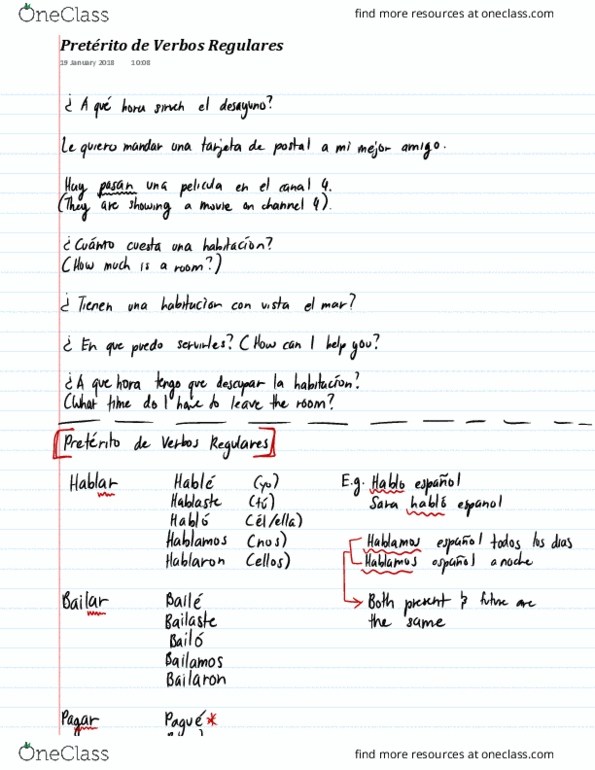 OneClass
find more resources at oneclass.com
Pretérito de Verbos Regulares
19 January 2018 10:08
¿ A qué hora sirven el desayuno?
Le quiero mandar una tarjeta de postal a mi mejor amigo.
Hay pasan una película en el canal 4.
(They are showing a movie on channel 4).
¿Cuánto cuesta una habitación?
(How much is a room?)
¿ Tienen una habitacion con vista el mar?
¿ En que puedo servirles? (How can I help you?
¿A que hora tengo que descupar la habitación?
(What time do I have to leave the room?
Pretérito de Verbos Regulares
Hablar Hablé (yo) E.g. Hablo español
Hablaste (tú) Sara habló espanol
Habló (él/ella)
Hablamos (nos) Hablamos español todos los dias
Hablaron (ellos) Hablamos español anoche
Bailar Bailé Both present & future are
Bailaste the same
Bailó
Bailamos
Bailaron
Pagar Pagué*
OneClass
find more resources at oneclass.com